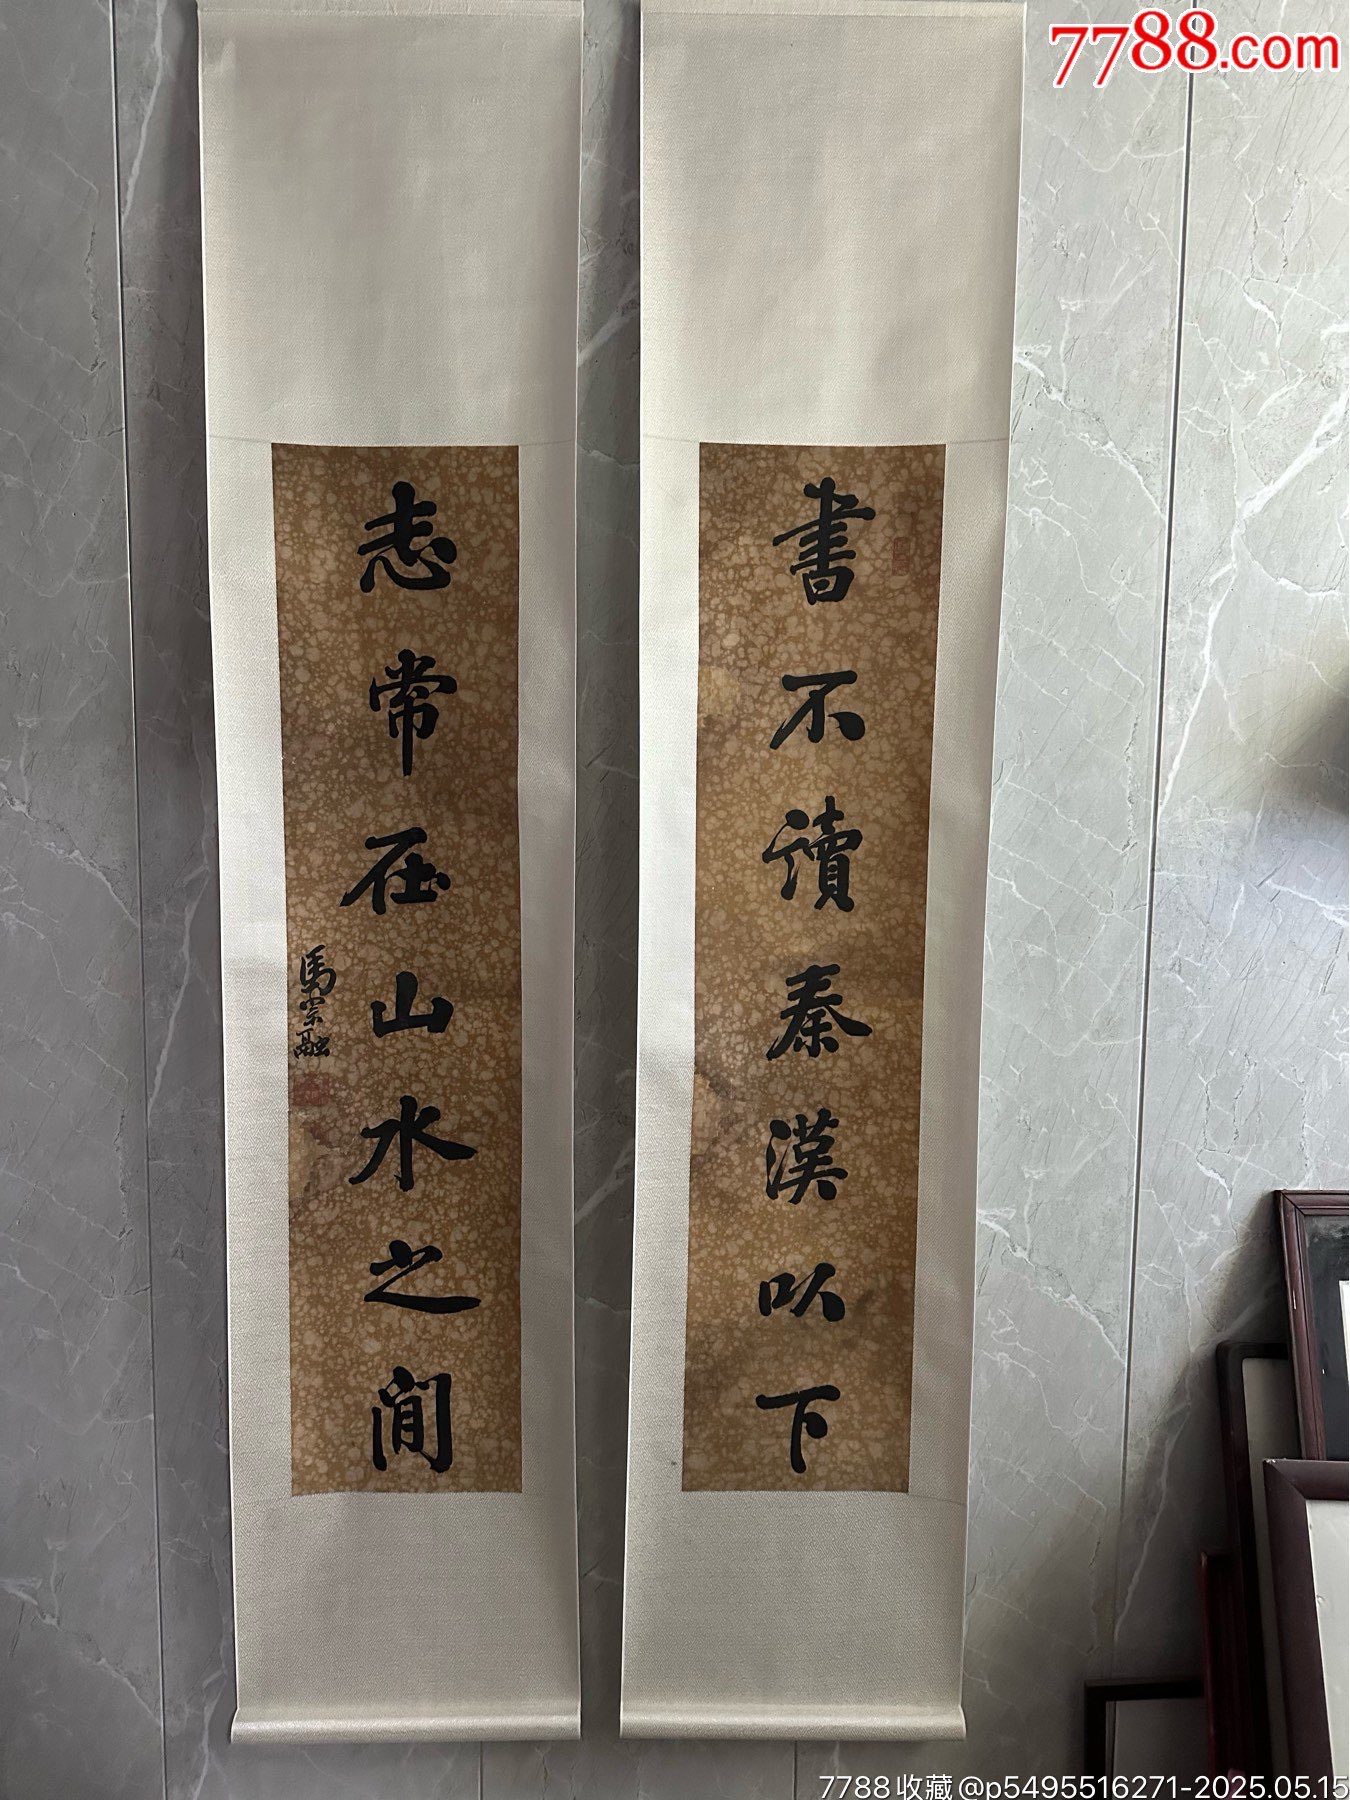 7788.com
書不讀秦漢以下
志常在山水之間
馬宗融
7788收藏@p5495516271-2025.05.15